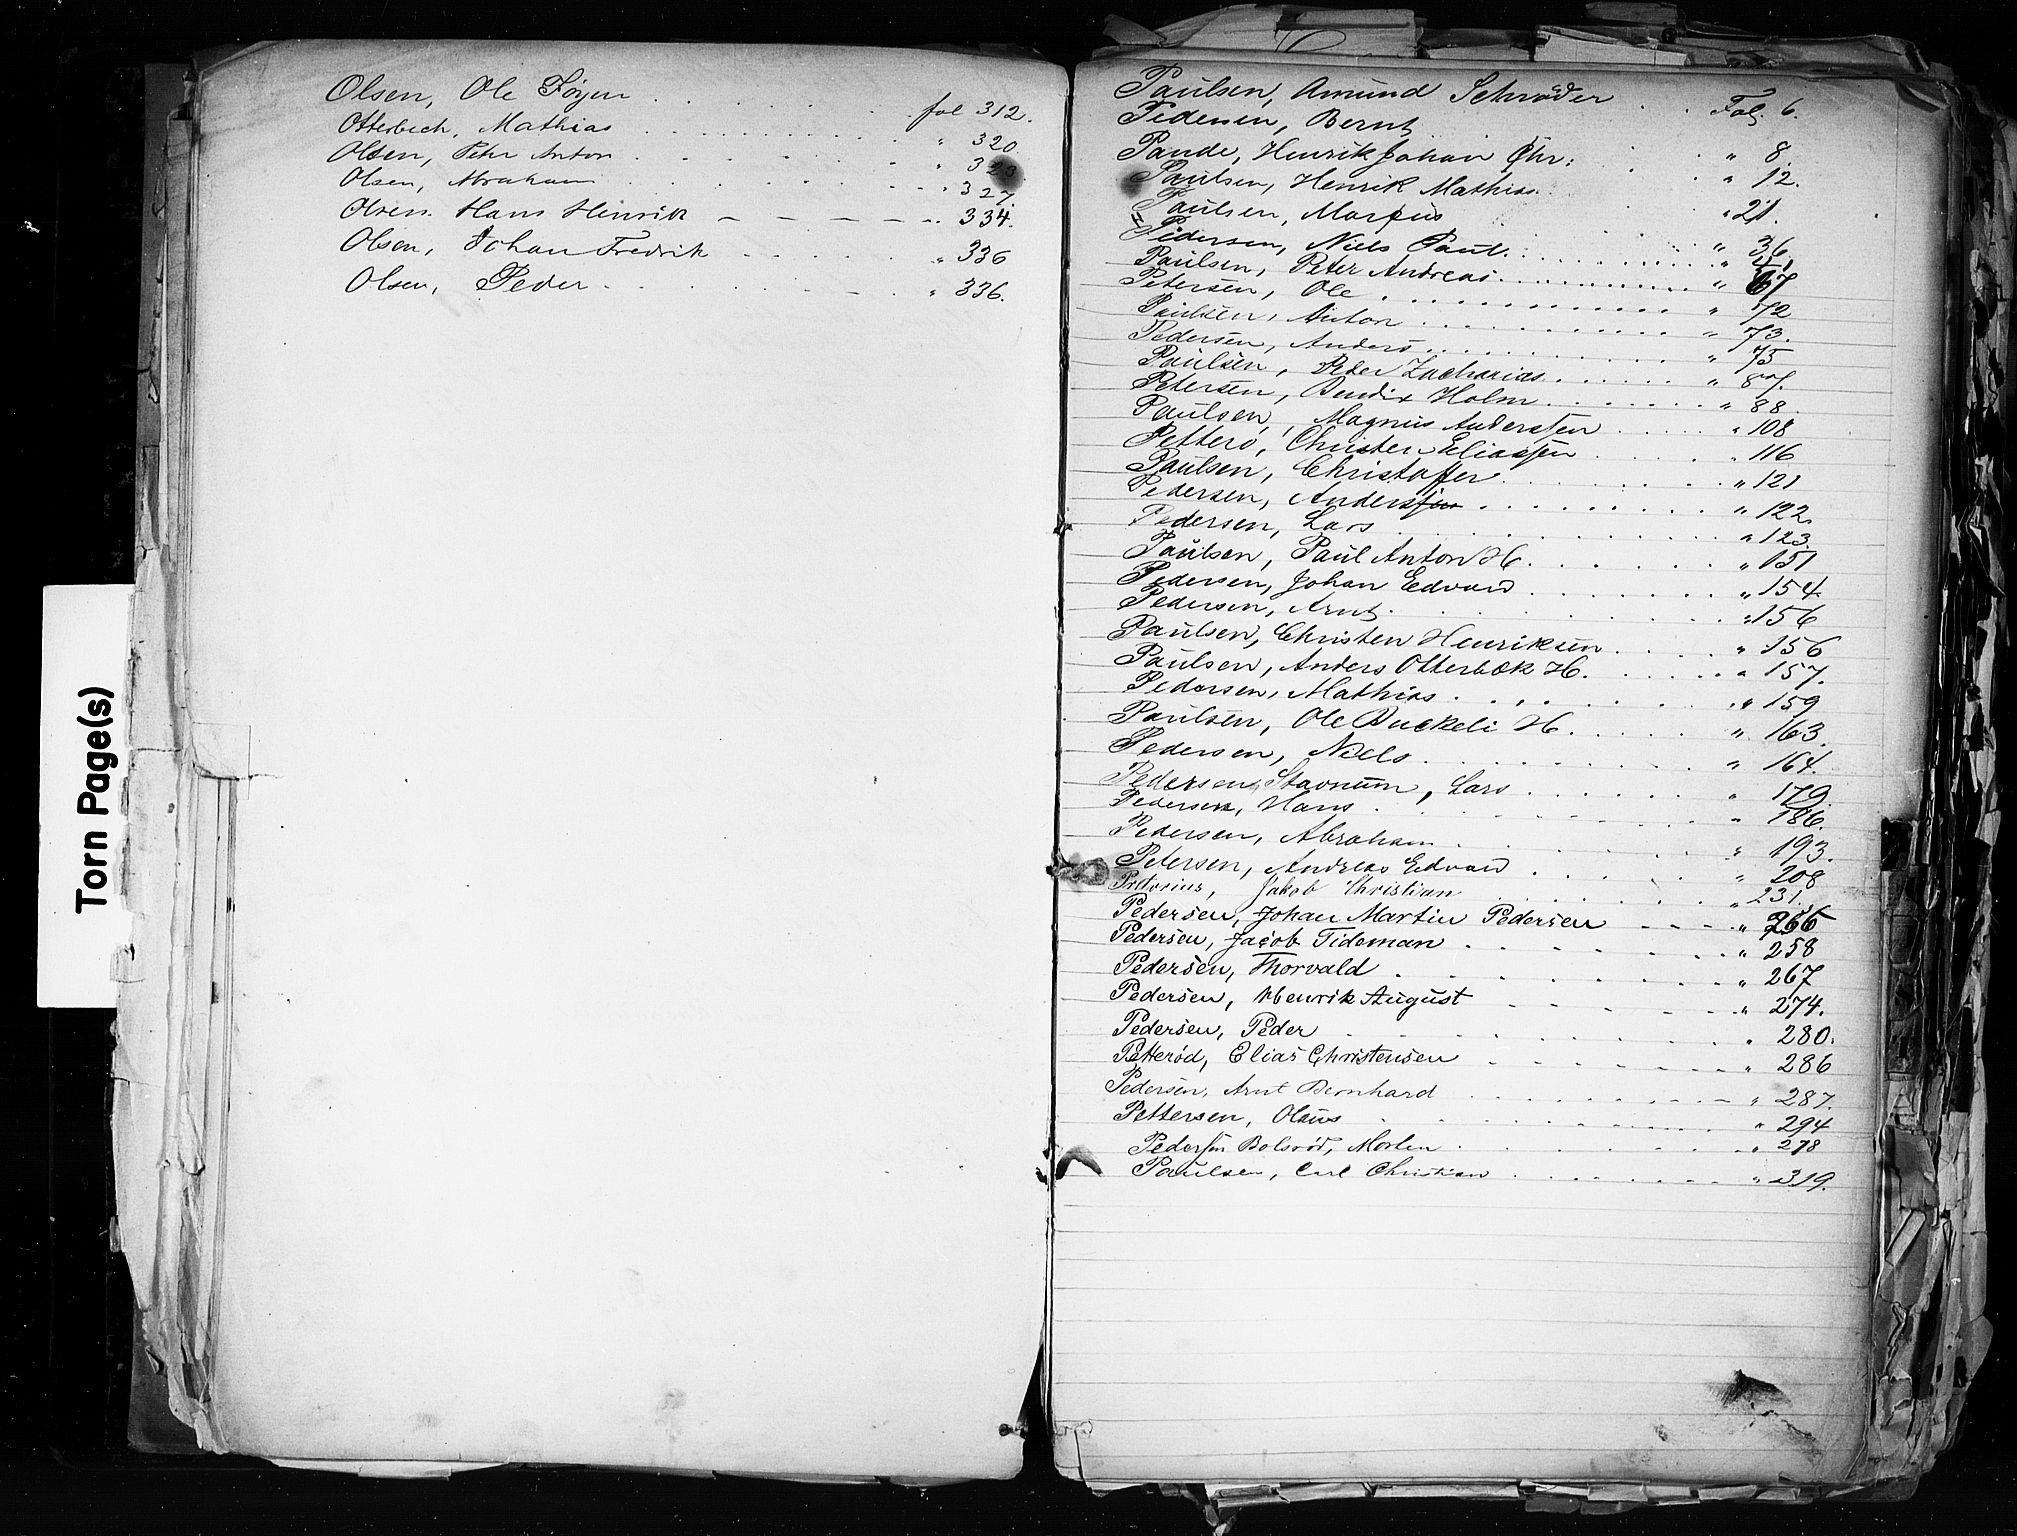 Torn Page(s)
Olsen, Ole Föyen . . . . . fol 312.
Otterbech, Mathias . . . . . " 320.
Olsen, Peter Anton . . . . . " 323
Olsen, Abraham . . . . . " 327.
Olsen. Hans Henrik - - - - - " 334.
Olsen, Johan Fredrik . . . . . " 336
Olsen, Peder . . . . . " 336.
Paulsen, Amund Schrøder . . Fol. 6.
Pedersen, Bernt . . . . " 8.
Paude, Henrik Johan Chr: . . . " 12.
Paulsen, Henrik Mathias . . . " 21.
Paulsen, Marcus . . . . " 36.
Pedersen, Niels Paul . . . . "
Paulsen, Peter Andreas . . . . " 67
Petersen, Ole . . . . " 72
Paulsen, Anton . . . . " 73.
Pedersen, Anders . . . . " 75
Paulsen, Peder Zacharias . . . . " 87.
Petersen, Bendix Holm . . . . " 88.
Paulsen, Magnus Anderssen . . . . " 108
Petterö, Christen Eliassen . . . . " 116
Paulsen, Christoffer . . . . " 121
Pedersen, Anderssen . . . . " 122.
Pedersen, Lars . . . . " 123.
Paulsen, Paul Anton H. . . . . " 151
Pedersen, Johan Edvard . . . . " 154.
Pedersen, Arnt . . . . " 156
Paulsen, Christen Henriksen . . . . " 156
Paulsen, Anders Otterbæk H. . . . . " 157.
Pedersen, Mathias . . . . " 159
Paulsen, Ole Buckeli H. . . . . " 163.
Pedersen, Niels . . . . " 164.
Pedersen Stavnum, Lars . . . . " 179.
Pedersen, Hans . . . . " 186.
Pedersen, Abraham . . . . " 193.
Petersen, Andreas Edvard . . . . " 208
Pretorius, Jakob Christian . . . . " 231.
Pedersen, Johan Martin Pedersen - - - - "
Pedersen, Jacob Tideman . . . . " 258
Pedersen, Thorvald . . . . " 267
Pedersen, Henrik August . . . . " 274.
Pedersen, Peder . . . . " 280.
Petterød, Elias Christensen . . . . " 286
Pedersen, Arnt Bernhard . . . . " 287.
Pettersen, Olaus . . . . " 294
Pedersen Bolsrød, Morten . . . . " 278
Paulsen, Carl Christian . . . . " 319.